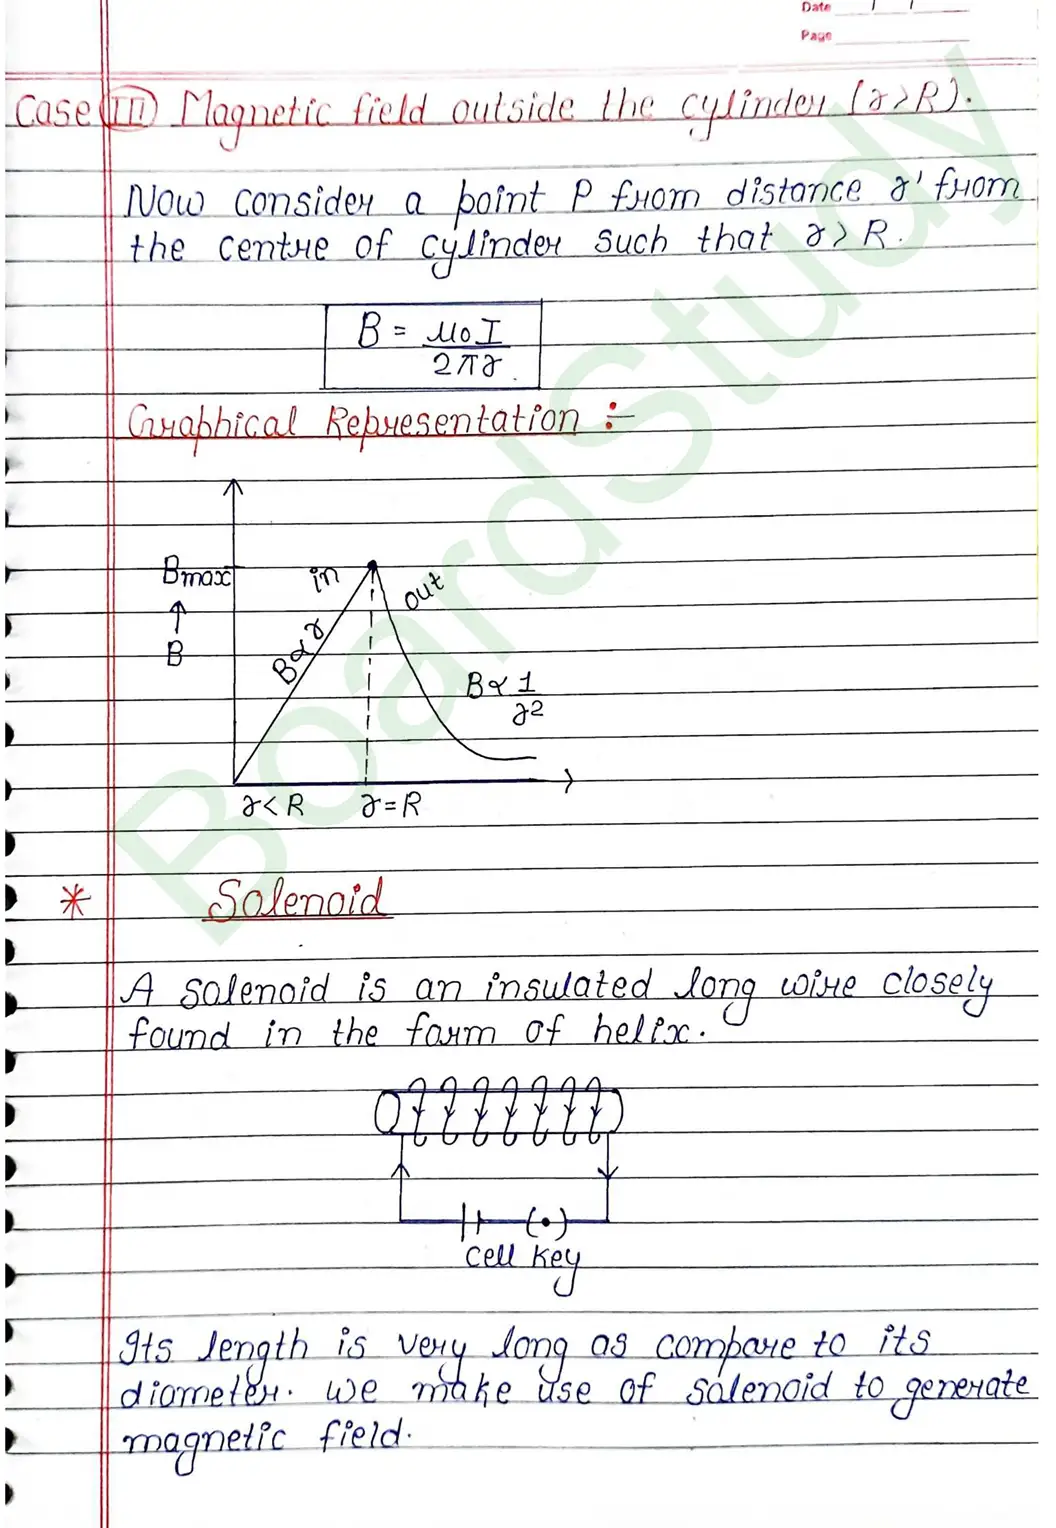 Date
Page
Case III Magnetic field outside the cylinder (r>R).
Now consider a point P from distance r' from
the centre of cylinder such that r > R.
B = μ0 I / 2πr
Graphical Representation :-
Bmax
in
out
↑
B
B∝r
B∝ 1/r2
r<R r=R
* Solenoid
A solenoid is an insulated long wire closely
found in the form of helix.
cell key
Its length is very long as compare to its
diameter. we make use of solenoid to generate
magnetic field.
BoardStudy